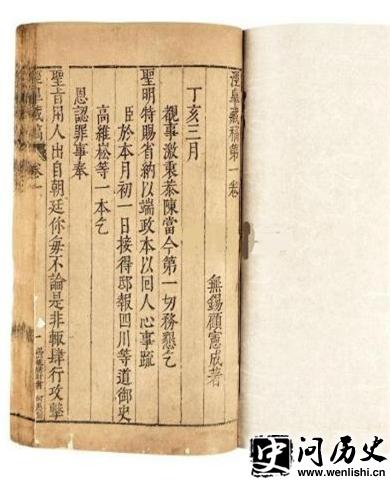 涇皐藏稿第一卷
無錫顧憲成著
丁亥三月
覩事激衷恭陳當今第一切務懇乞
聖明特賜省納以端政本以回人心事疏
臣於本月初一日接得邸報四川等道御史
高維崧等一本乞
恩認罪事奉
聖旨用人出自朝廷你每不論是非輒肆行攻擊
涇皐藏稿 卷一
一
史
问历史
www.wenlishi.cn